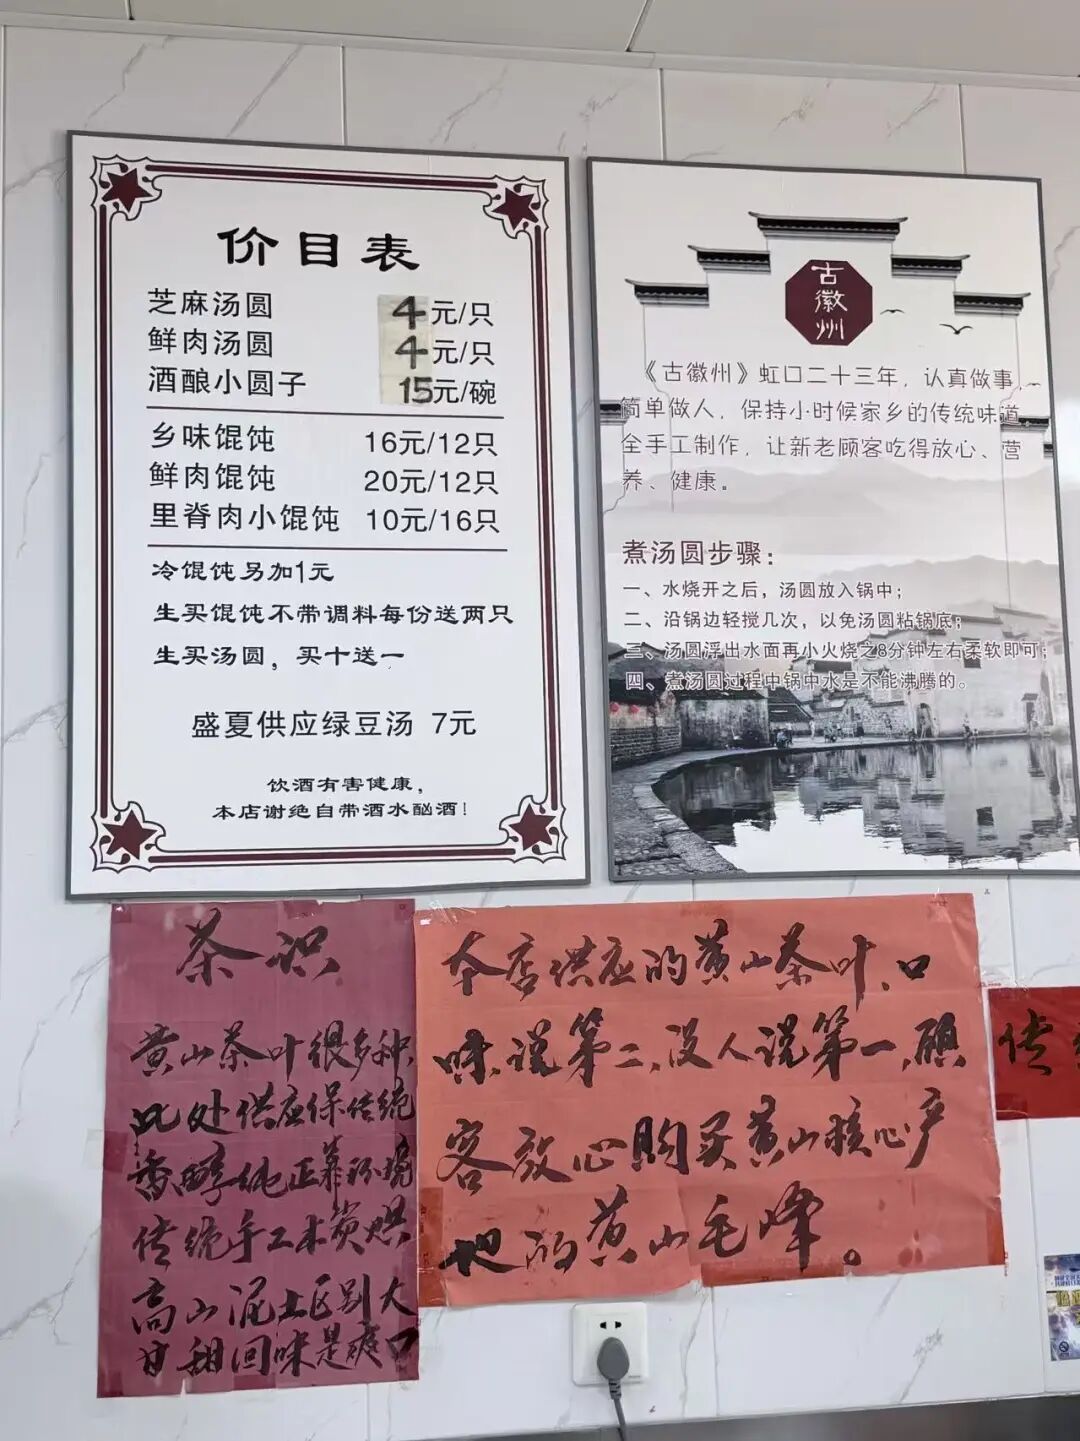 价目表
芝麻汤圆 4元/只
鲜肉汤圆 4元/只
酒酿小圆子 15元/碗
乡味馄饨 16元/12只
鲜肉馄饨 20元/12只
里脊肉小馄饨 10元/16只
冷馄饨另加1元
生买馄饨不带调料每份送两只
生买汤圆，买十送一
盛夏供应绿豆汤 7元
饮酒有害健康，
本店谢绝自带酒水酗酒！
古徽州
《古徽州》虹口二十三年，认真做事，
简单做人，保持小时候家乡的传统味道，
全手工制作，让新老顾客吃得放心、营
养、健康。
煮汤圆步骤：
一、水烧开之后，汤圆放入锅中；
二、沿锅边轻搅几次，以免汤圆粘锅底；
三、汤圆浮出水面再小火烧之8分钟左右柔软即可；
四、煮汤圆过程中锅中水是不能沸腾的。
茶识
黄山茶叶很多种，
此处供应保传统
香醇纯正靠环境
传统手工木炭烘
高山泥土区别大
甘甜回味是爽口
本店供应的黄山茶叶、口
味，说第二，没人说第一，顾
客放心购买黄山核心产
地的黄山毛峰。
传